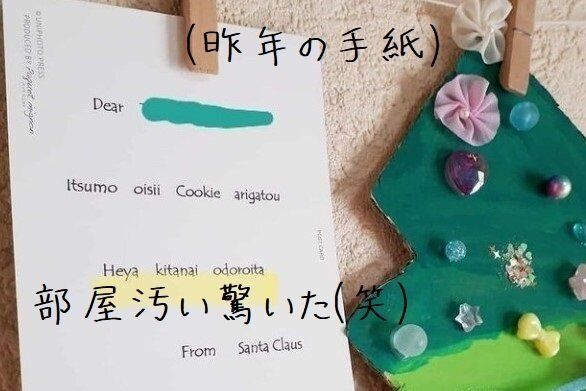 (昨年の手紙)
© UNIPHOTO PRESS
PRODUCED BY
Dear
Itsumo oisii Cookie arigatou
Heya kitanai odoroita
部屋汚い驚いた(笑)
From Santa Claus
POSTCARD